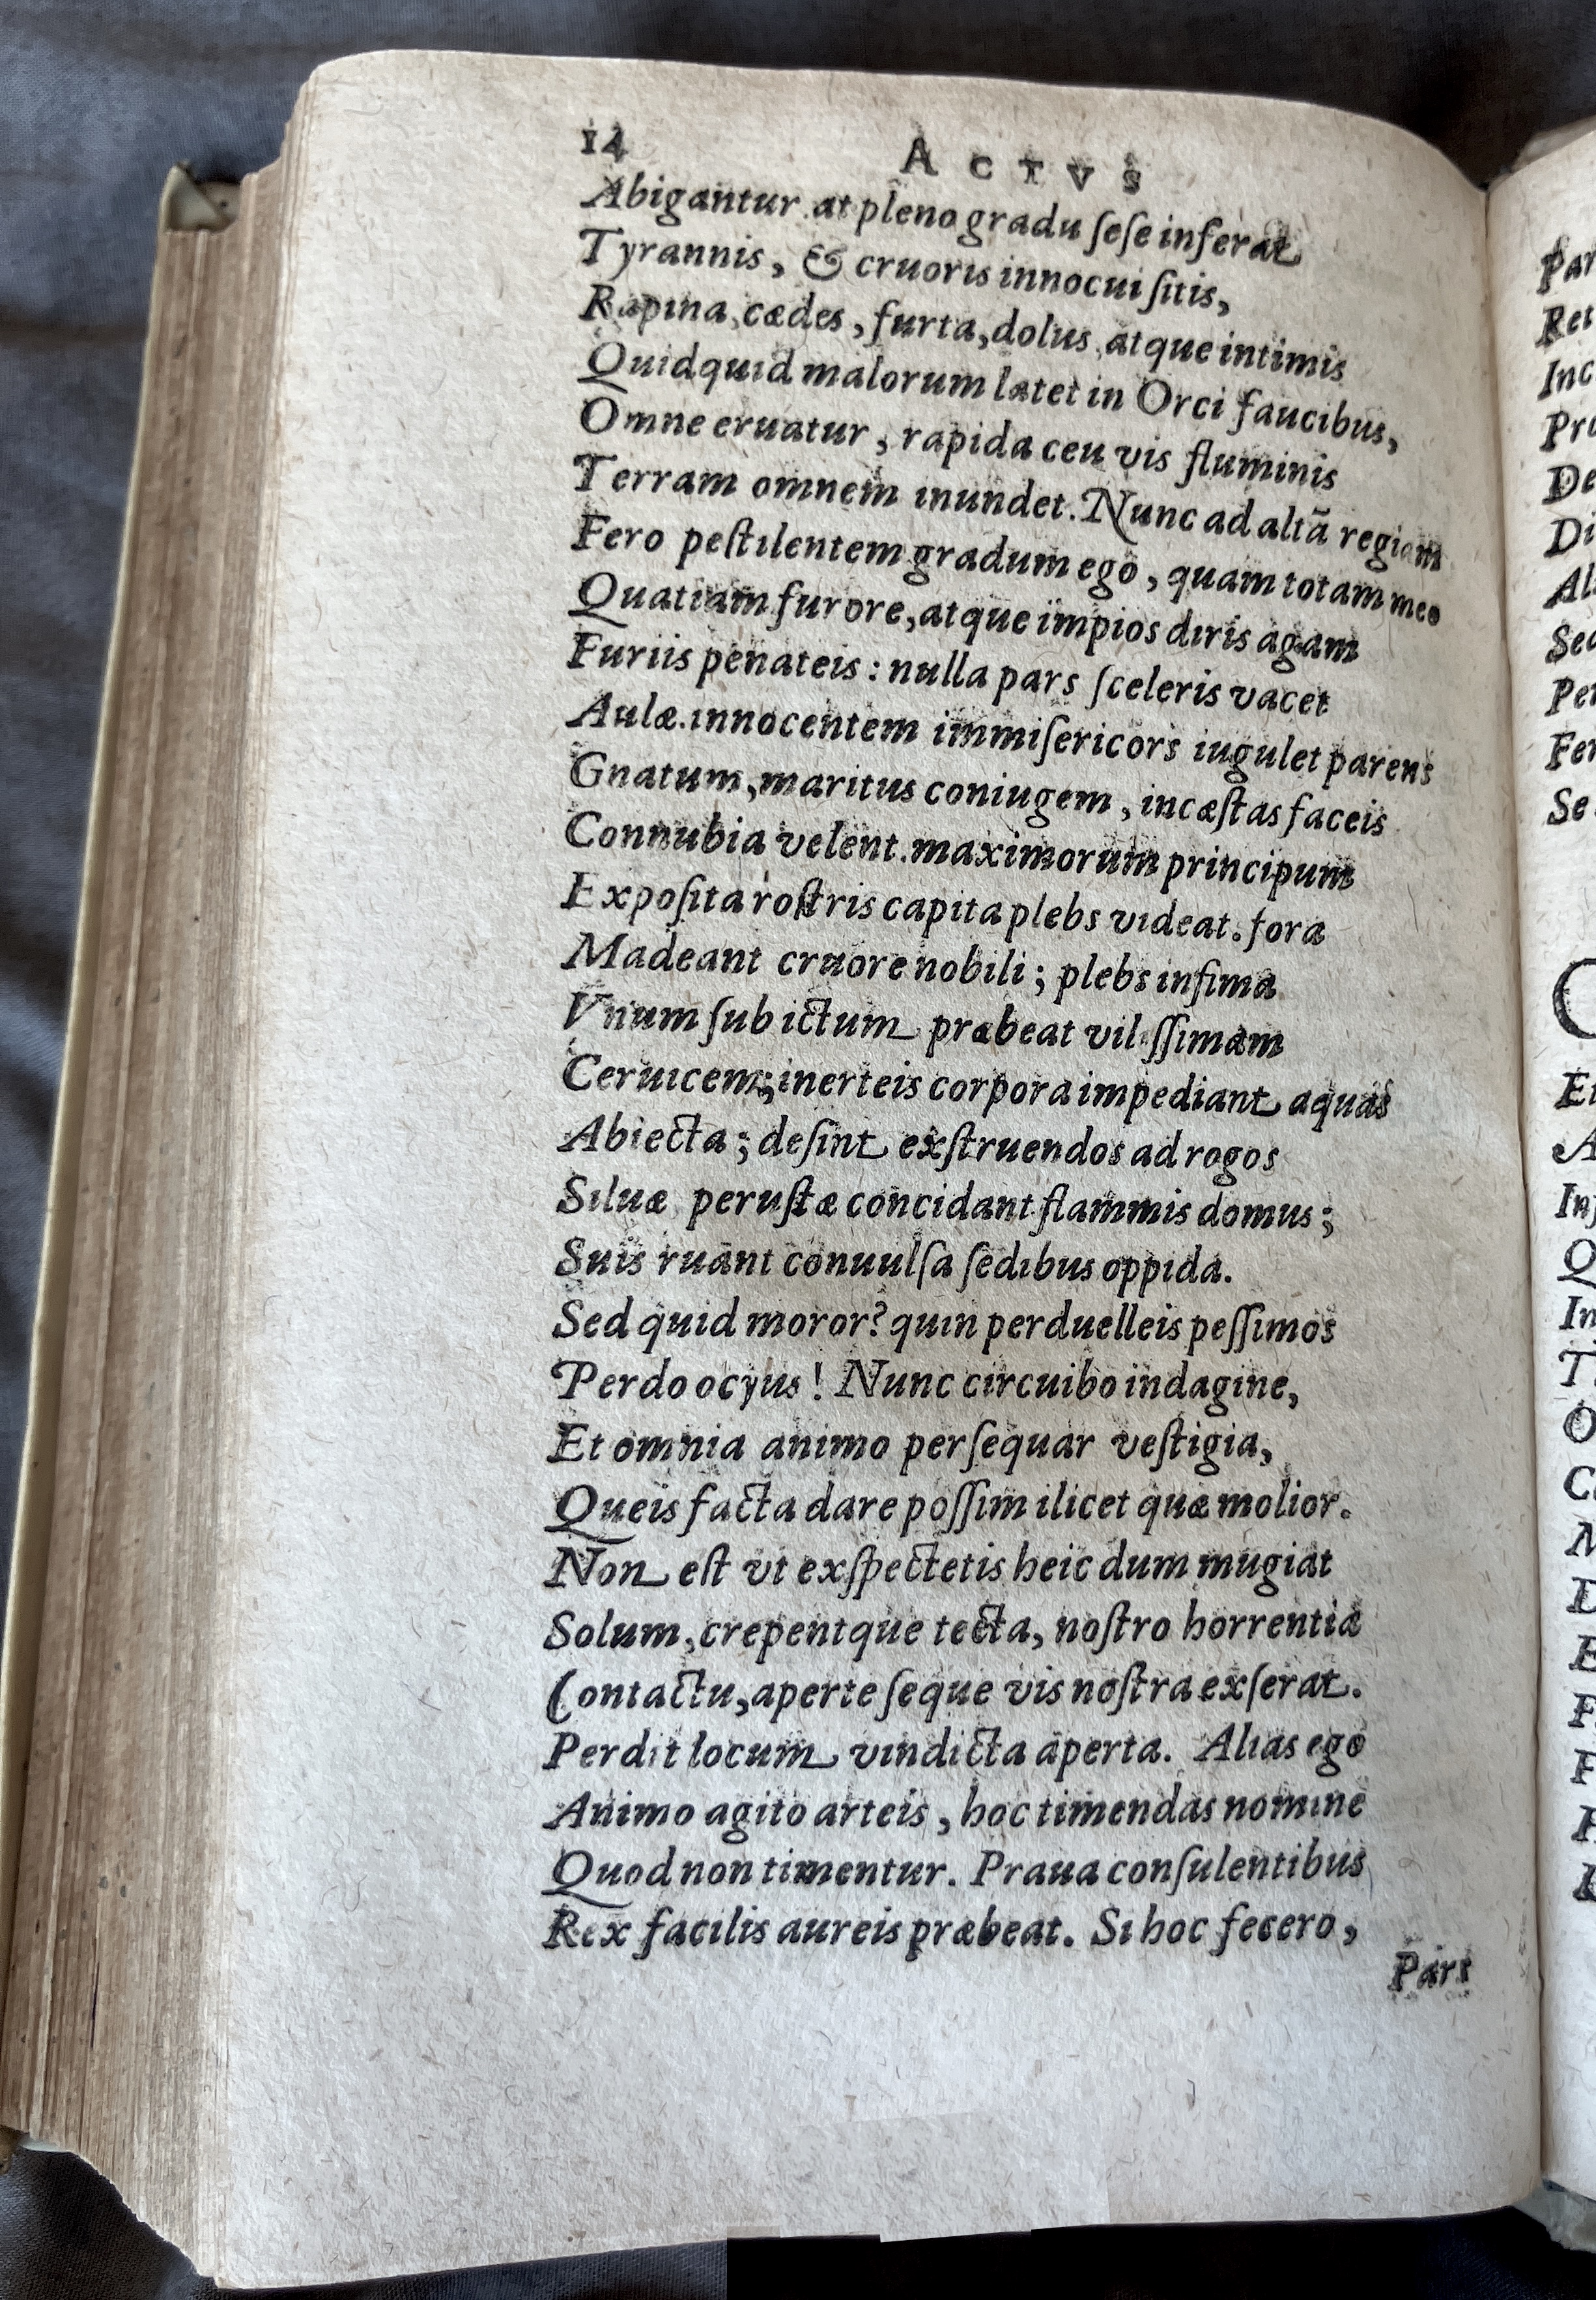 14 ACTVS
Abigantur. at pleno gradu ſeſe inferat
Tyrannis, & cruoris innocui ſitis,
Rapina, cædes, furta, dolus, atque intimis
Quidquid malorum latet in Orci faucibus,
Omne eruatur, rapida ceu vis fluminis
Terram omnem inundet. Nunc ad altã regiam
Fero peſtilentem gradum ego, quam totam meo
Quatiam furore, atque impios diris agam
Furiis penateis: nulla pars ſceleris vacet
Aulæ. innocentem immiſericors iugulet parens
Gnatum, maritus coniugem, incæſtas faceis
Connubia velent. maximorum principum
Expoſita roſtris capita plebs videat. fora
Madeant cruore nobili; plebs infima
Vnum ſub ictum præbeat viliſſimam
Ceruicem; inerteis corpora impediant aquas
Abiecta; deſint exſtruendos ad rogos
Siluæ peruſtæ concidant flammis domus;
Suis ruant conuulſa ſedibus oppida.
Sed quid moror? quin perduelleis peſſimos
Perdo ocyus! Nunc circuibo indagine,
Et omnia animo perſequar veſtigia,
Queis facta dare poſſim ilicet quæ molior.
Non eſt vt exſpectetis heic dum mugiat
Solum, crepentque tecta, noſtro horrentia
Contactu, aperte ſeque vis noſtra exſerat.
Perdit locum vindicta aperta. Alias ego
Animo agito arteis, hoc timendas nomine
Quod non timentur. Praua conſulentibus
Rex facilis aureis præbeat. Si hoc fecero,
Pars
Par
Ret
Inc
De
Di
Sed
Per
Fer
Se
Et
A
In